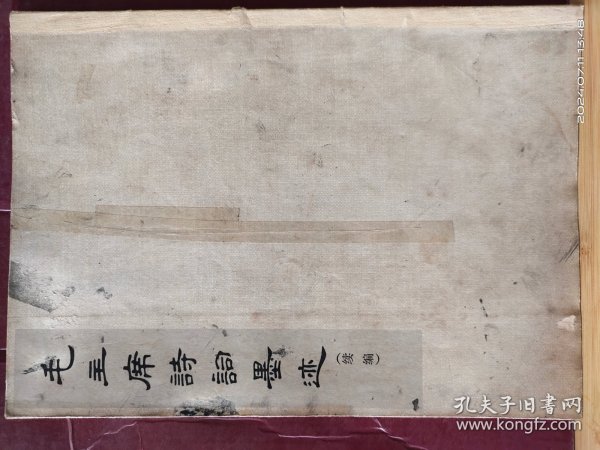 毛主席詩詞墨迹
(续编)
2024.07.11 13:48
孔夫子旧書网
www.kongfz.com